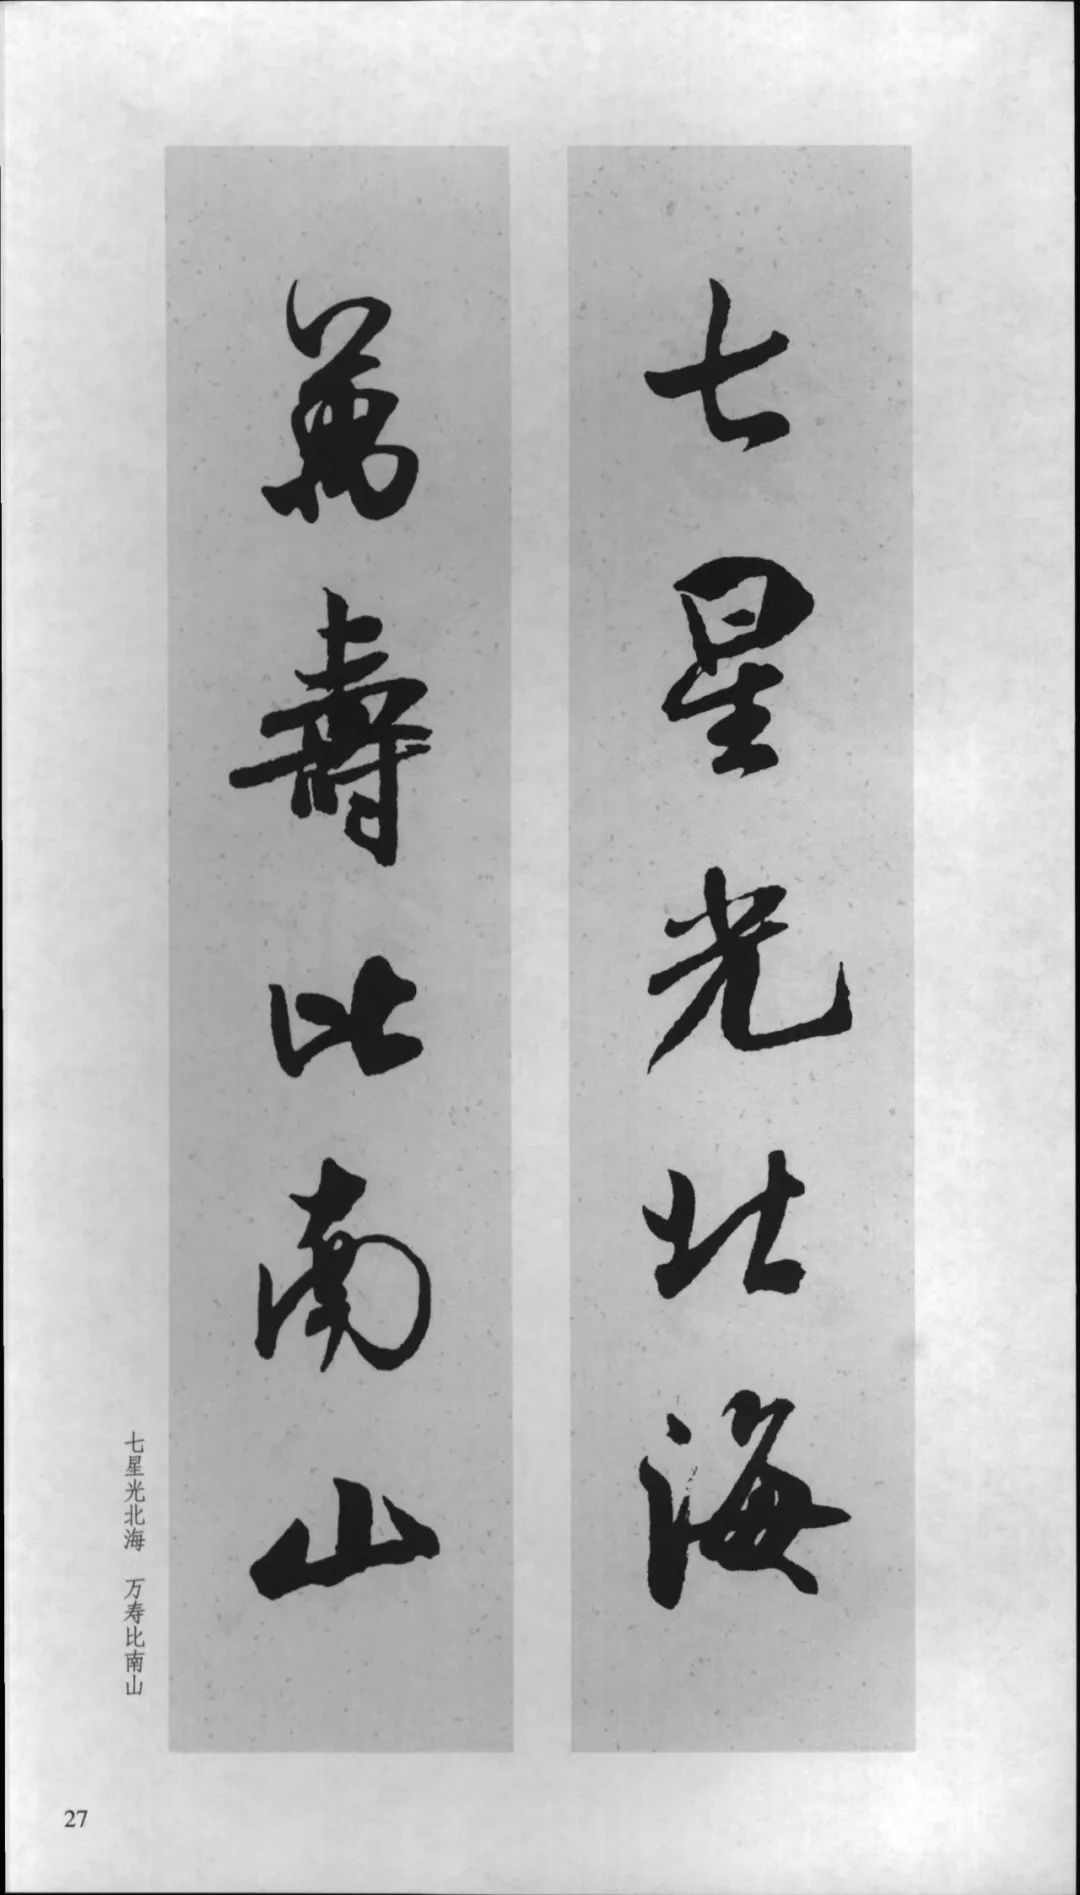 七星光北海
萬壽比南山
七星光北海　万寿比南山
27